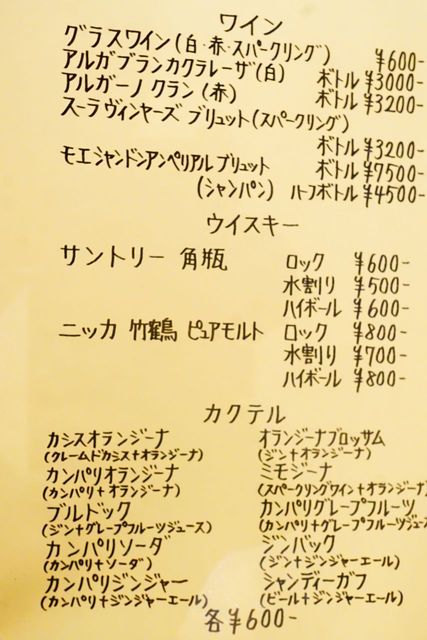 ワイン
グラスワイン(白・赤・スパークリング) ¥600-
アルガブランカクラレーザ(白) ボトル ¥3000-
アルガーノ クラン (赤) ボトル ¥3200-
スーラ ヴィンヤーズ ブリュット(スパークリング)
ボトル ¥3200-
モエシャンドンアンペリアルブリュット ボトル ¥7500-
(シャンパン) ハーフボトル ¥4500-
ウイスキー
サントリー 角瓶 ロック ¥600-
水割り ¥500-
ハイボール ¥600-
ニッカ 竹鶴 ピュアモルト ロック ¥800-
水割り ¥700-
ハイボール ¥800-
カクテル
カシスオランジーナ オランジーナブロッサム
(クレームドカシス+オランジーナ) (ジン+オランジーナ)
カンパリオランジーナ ミモジーナ
(カンパリ+オランジーナ) (スパークリングワイン+オランジーナ)
ブルドック カンパリグレープフルーツ
(ジン+グレープフルーツジュース) (カンパリ+グレープフルーツジュース
カンパリソーダ ジンバック
(カンパリ+ソーダ) (ジン+ジンジャーエール)
カンパリジンジャー シャンディーガフ
(カンパリ+ジンジャーエール) (ビール+ジンジャーエール)
各¥600-